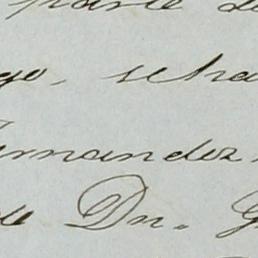 parte de
go, se ha
ernandez
de Dn. G